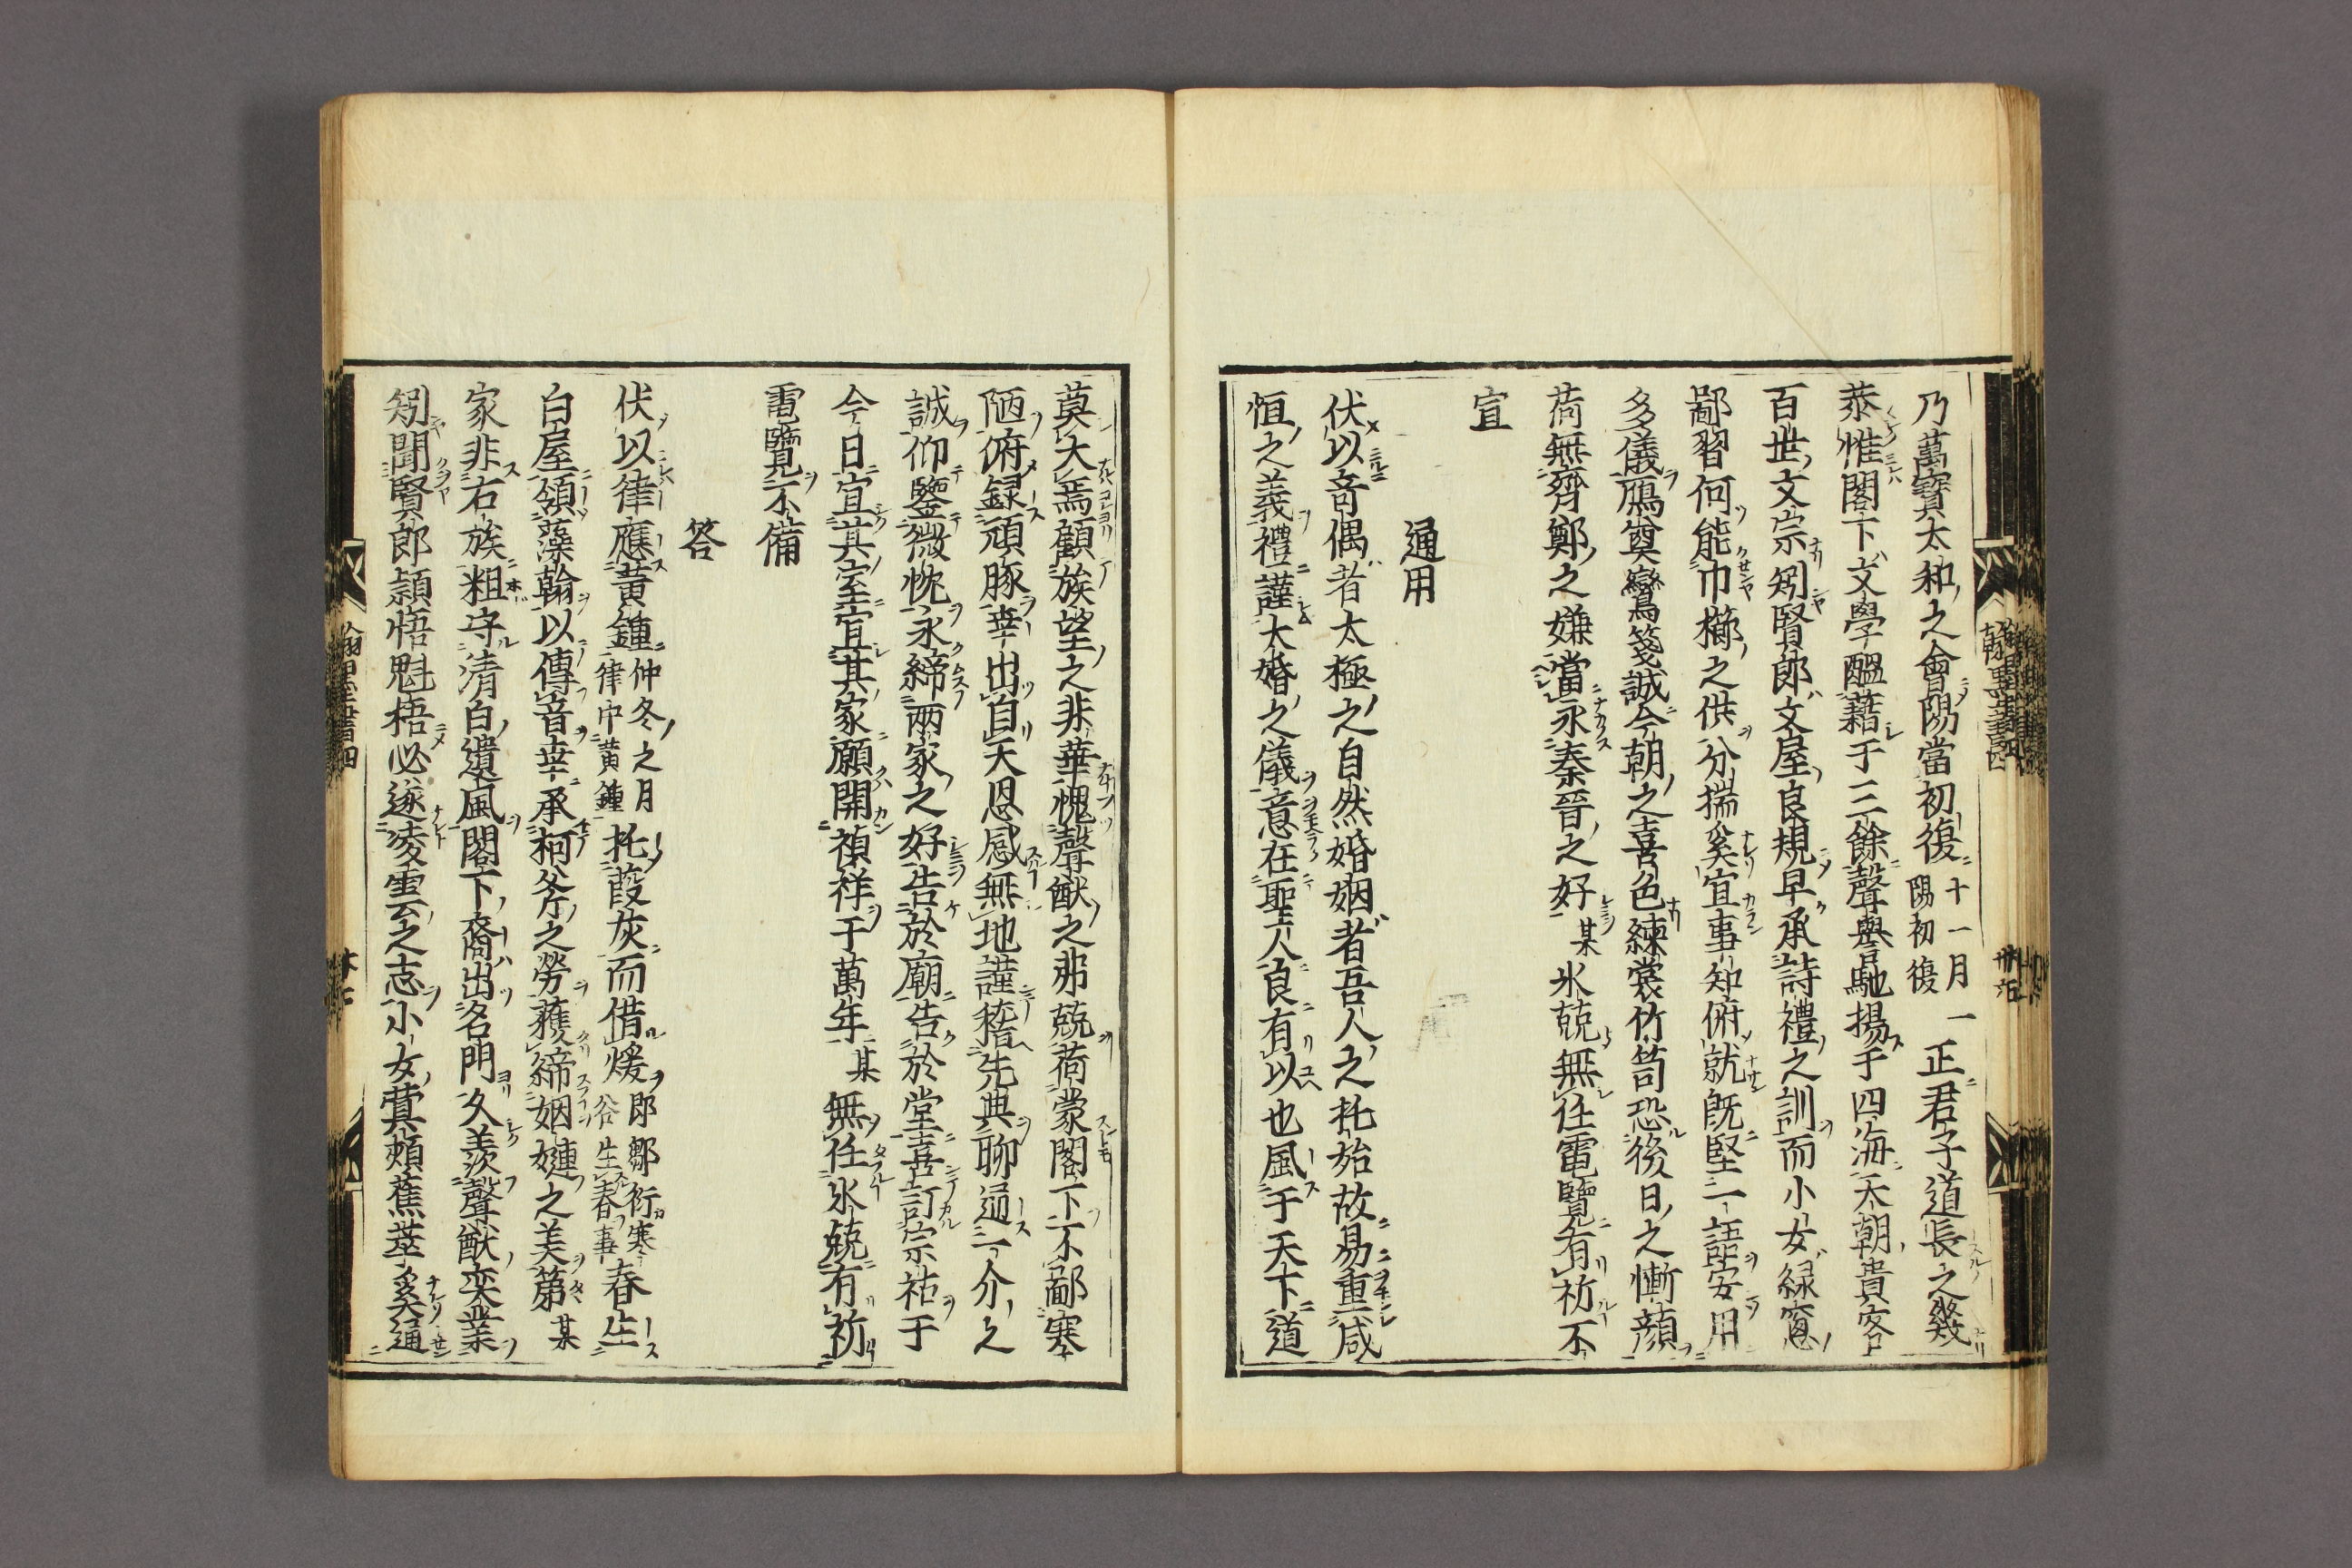 乃萬寶太和之會陽當初復十一月一陽初復正君子道長之幾
恭惟閣下文學醞藉于三餘聲譽馳揚于四海天朝貴客
百世文宗矧賢郎文屋良規早承詩禮之訓而小女緑窓
鄙習何能巾櫛之供分揣奚宜事知俯就既堅一諾安用
多儀鴈奠鸞箋誠今朝之喜色練裳竹笥恐後日之慚顔
荷無齊鄭之嫌當永秦晉之好某氷兢無任電覽有祈不
宣
通用
伏以竒偶者太極之自然婚姻者吾人之托始故易重咸
恒之義禮謹大婚之儀意在聖人良有以也風于天下道
莫大焉顧族望之非華愧聲猷之弗兢荷蒙閣下不鄙寒
陋俯録頑豚幸出自天恩感無地謹稽先典聊通一介之
誠仰鑒微忱永締兩家之好告於廟告於堂喜訂宗祜于
今日宜其室宜其家願開禎祥于萬年某無任氷兢有祈
電覽不備
答
伏以律應黄鍾仲冬之月律中黄鍾托葭灰而借煖郎鄒衍寒谷生春事春生
白屋頒藻翰以傳音幸承柯斧之勞蘓締姻嫤之美第某
家非右族粗守清白遺風閣下裔出名門久羨聲猷奕業
矧聞賢郎頴悟魁梧必遂凌雲之志小女蕢頼蕉萃奚通
翰墨書四